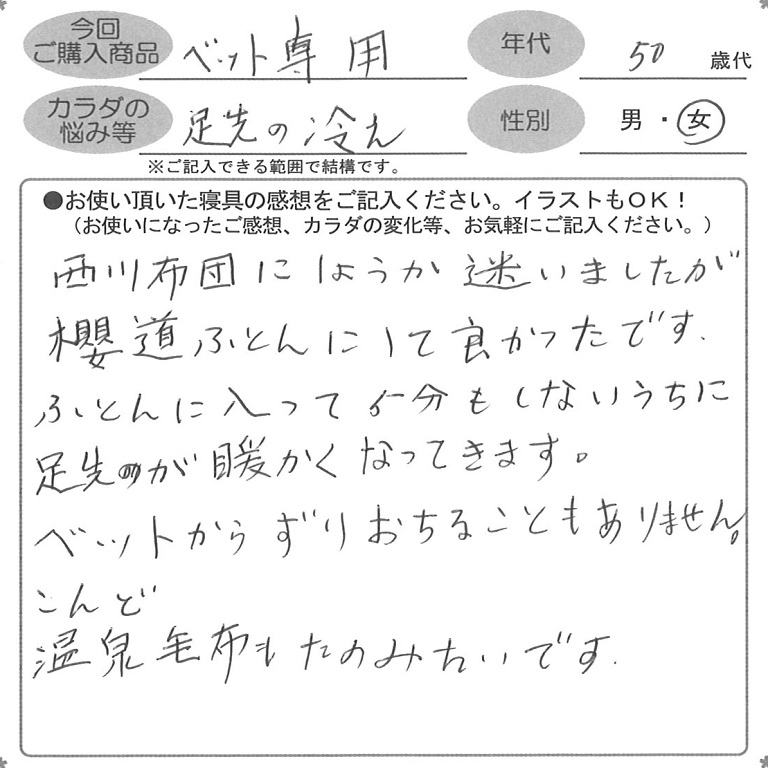 今回
ご購入商品
ベット専用
年代
50 歳代
カラダの
悩み等
足先の冷え
性別
男・女
※ご記入できる範囲で結構です。
●お使い頂いた寝具の感想をご記入ください。イラストもOK！
（お使いになったご感想、カラダの変化等、お気軽にご記入ください。）
西川布団にしようか迷いましたが
櫻道ふとんにして良かったです.
ふとんに入って5分もしないうちに
足先が暖かくなってきます。
ベットからずりおちることもありません。
こんど
温泉毛布もたのみたいです.